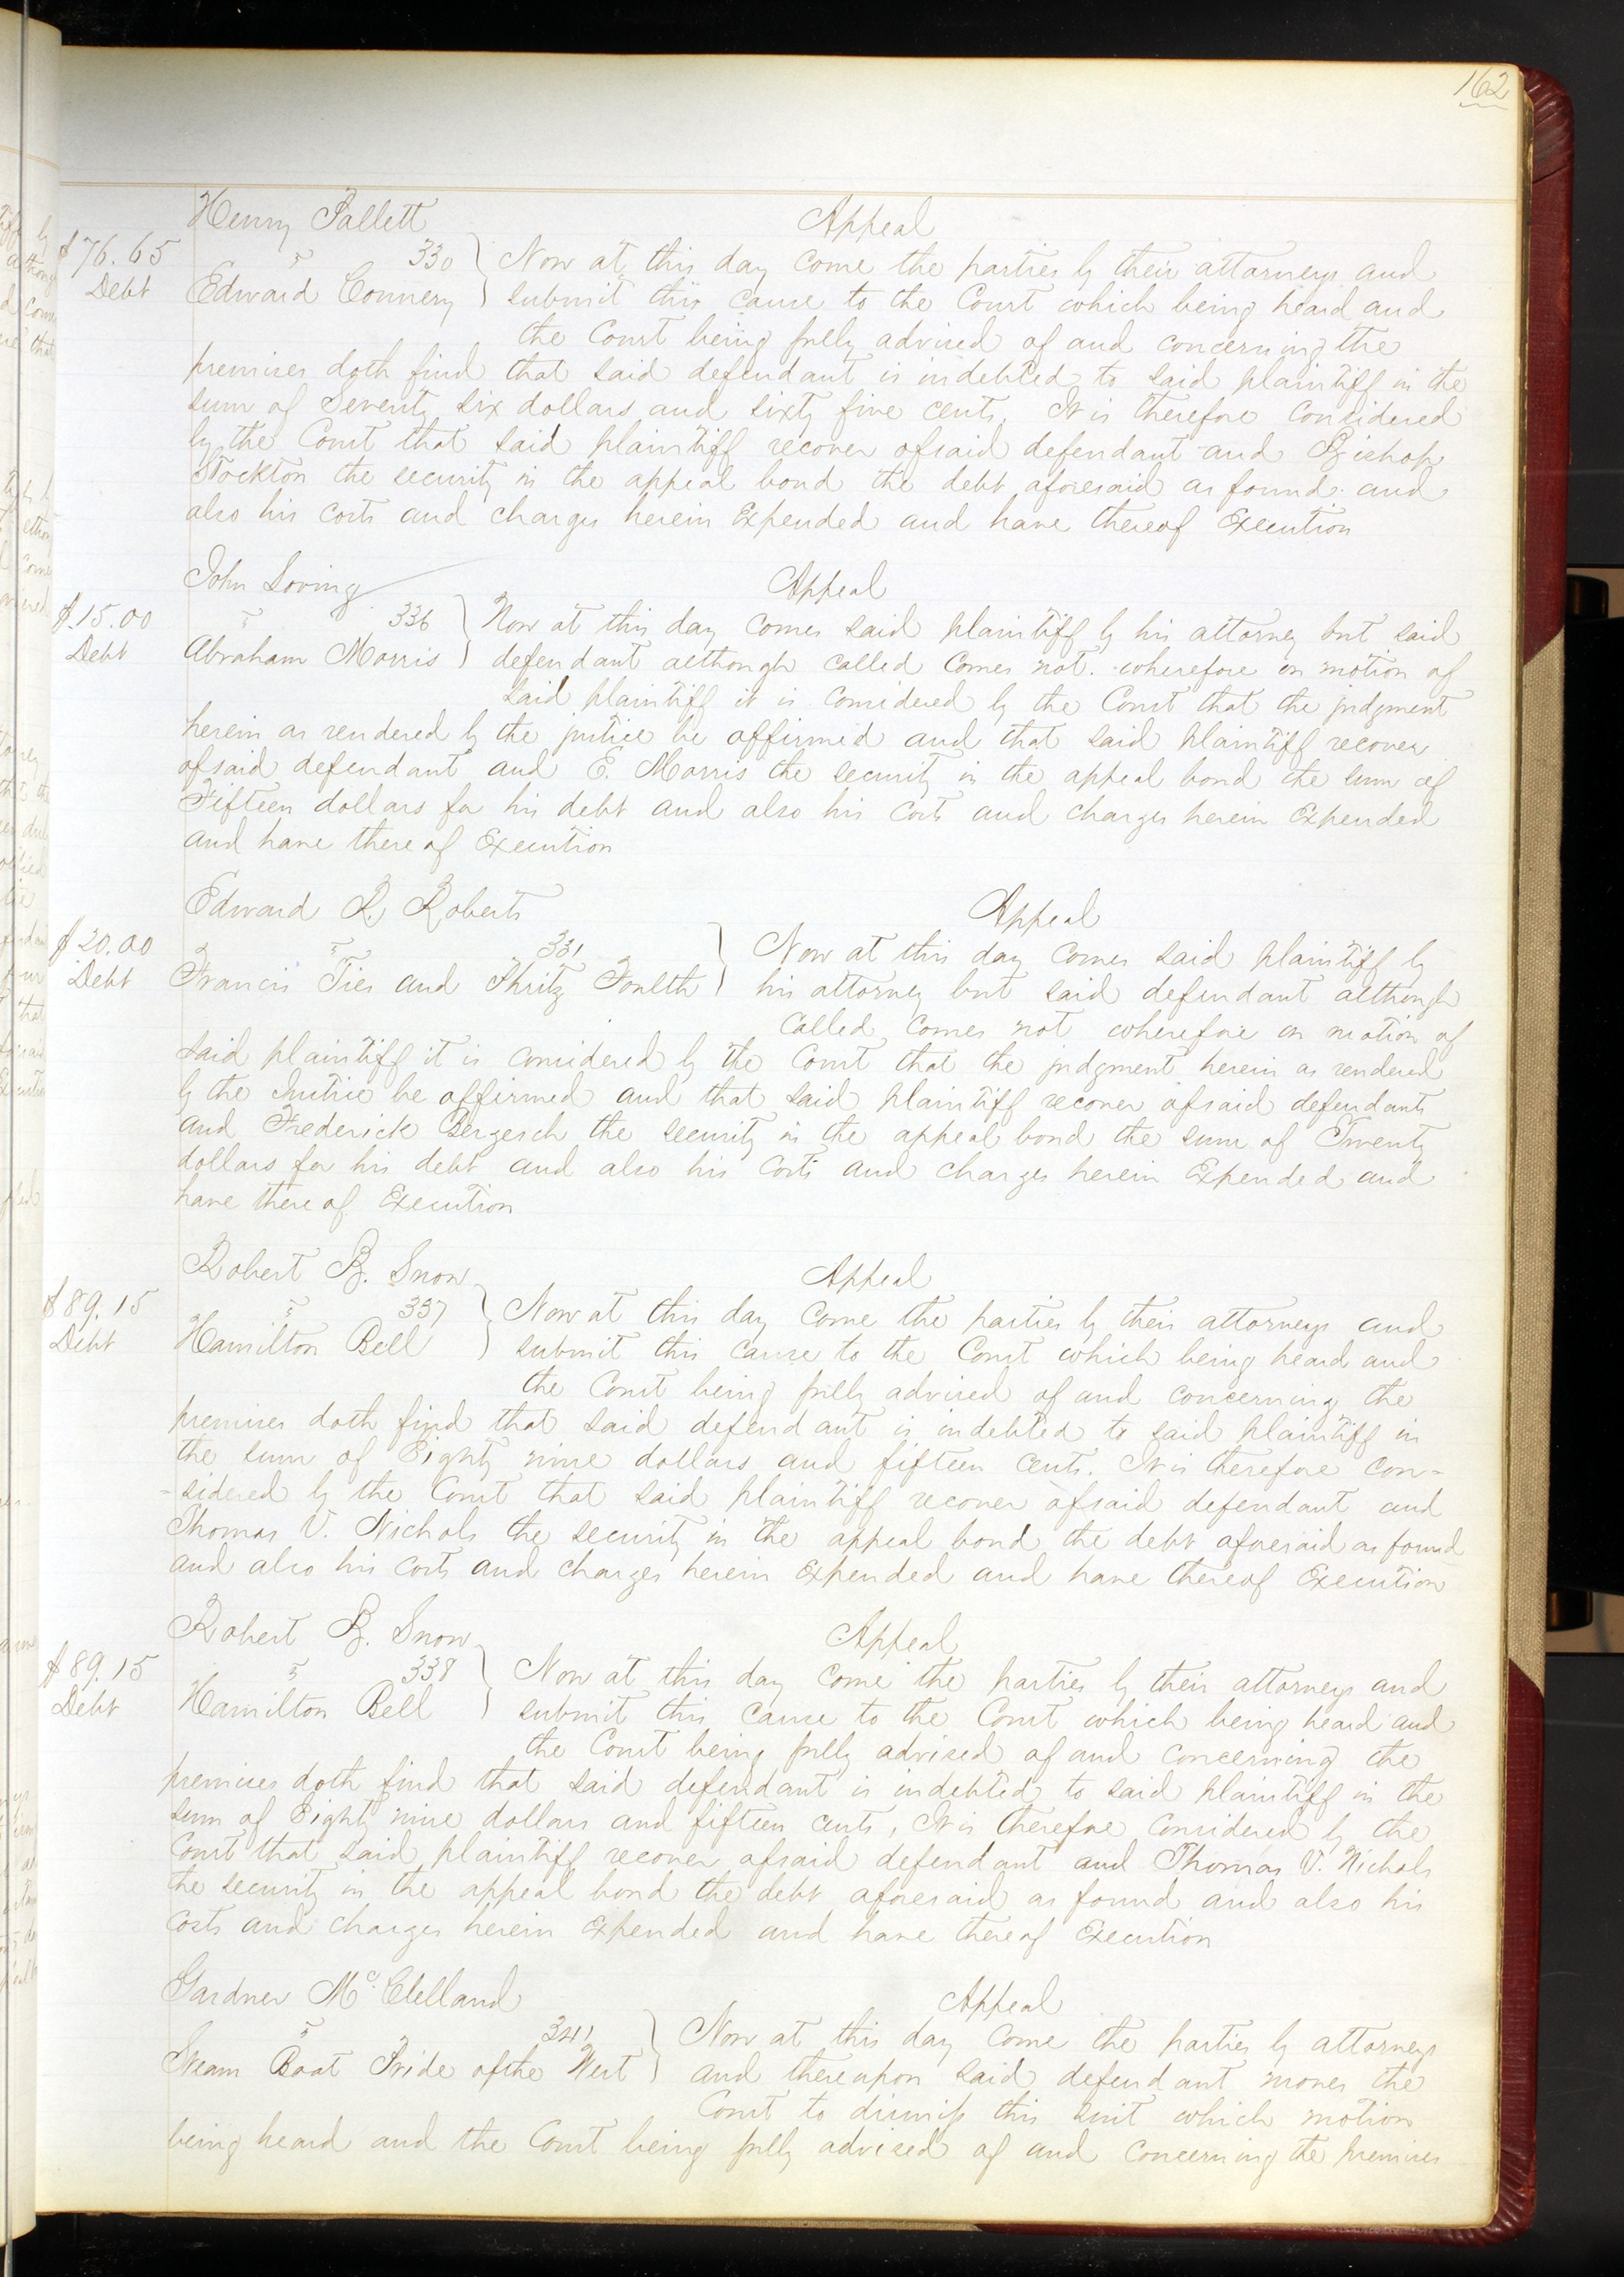 162
Henry Pallett Appeal
$76.65 vs 330 Now at this day come the parties by their attorneys and
Debt Edward Connery submit this cause to the Court which being heard and
the Court being fully advised of and concerning the
premises doth find that said defendant is indebted to said plaintiff in the
sum of Seventy six dollars and sixty five cents, It is therefore considered
by the Court that said plaintiff recover of said defendant and Bishop
Stockton the security in the appeal bond the debt aforesaid as found and
also his costs and charges herein Expended and have thereof Execution
John Loving Appeal
$15.00 vs 336 Now at this day comes said plaintiff by his attorney but said
Debt Abraham Morris defendant although called comes not. wherefore on motion of
said plaintiff it is considered by the Court that the judgment
herein as rendered by the justice be affirmed and that said plaintiff recover
of said defendant and E. Morris the security in the appeal bond the sum of
Fifteen dollars for his debt and also his costs and charges herein Expended
and have there of Execution
Edward R. Roberts Appeal
$20.00 vs 331 Now at this day comes said plaintiff by
Debt Francis Ties and Phritz his attorney but said defendant although
called comes not wherefore on motion of
said plaintiff it is considered by the Court that the judgment herein as rendered
by the Justice be affirmed and that said plaintiff recover of said defendants
and Frederick Bergesch the security in the appeal bond the sum of Twenty
dollars for his debt and also his costs and charges herein Expended and
have there of Execution
Robert B. Snow Appeal
$89.15 vs 337 Now at this day come the parties by their attorneys and
Debt Hamilton Bell submit this cause to the Court which being heard and
the Court being fully advised of and concerning the
premises doth find that said defendant is indebted to said plaintiff in
the sum of Eighty nine dollars and fifteen cents. It is therefore con=
=sidered by the Court that said plaintiff recover of said defendant and
Thomas V. Nichols the security in the appeal bond the debt aforesaid as found
and also his costs and charges herein Expended and have thereof Execution
Robert B. Snow Appeal
$89.15 vs 338 Now at this day come the parties by their attorneys and
Debt Hamilton Bell submit this cause to the Court which being heard and
the Court being fully advised of and concerning the
premises doth find that said defendant is indebted to said plaintiff in the
sum of Eighty nine dollars and fifteen cents, It is therefore considered by the
Court that said plaintiff recover of said defendant and Thomas V. Nichols
the security in the appeal bond the debt aforesaid as found and also his
costs and charges herein Expended and have thereof Execution
Gardner McClelland Appeal
vs 341 Now at this day come the parties by attorneys
Steam Boat Pride of the West and thereupon said defendant moves the
Court to dismiss this suit which motion
being heard and the Court being fully advised of and concerning the premises